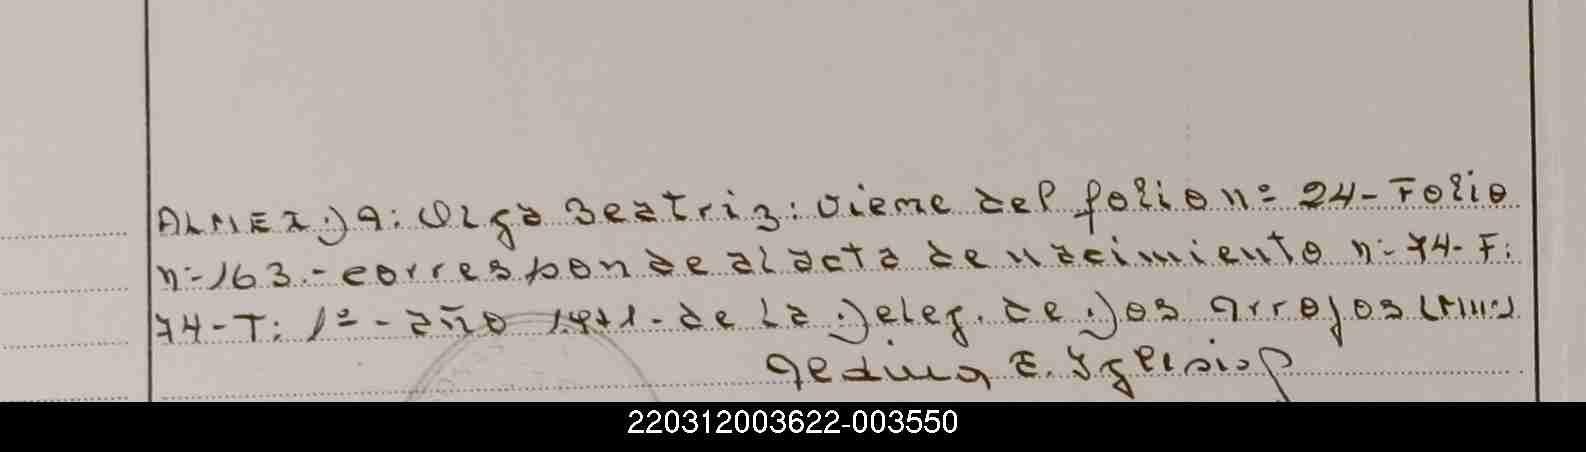 ALMEIDA: Olga Beatriz: viene del folio nº 24- Folio
nº 163.- corresponde al acta de nacimiento nº 74- F:
74- T: 1º - año 1971- de la Deleg. de Dos Arroyos
E. Iglesias
220312003622-003550